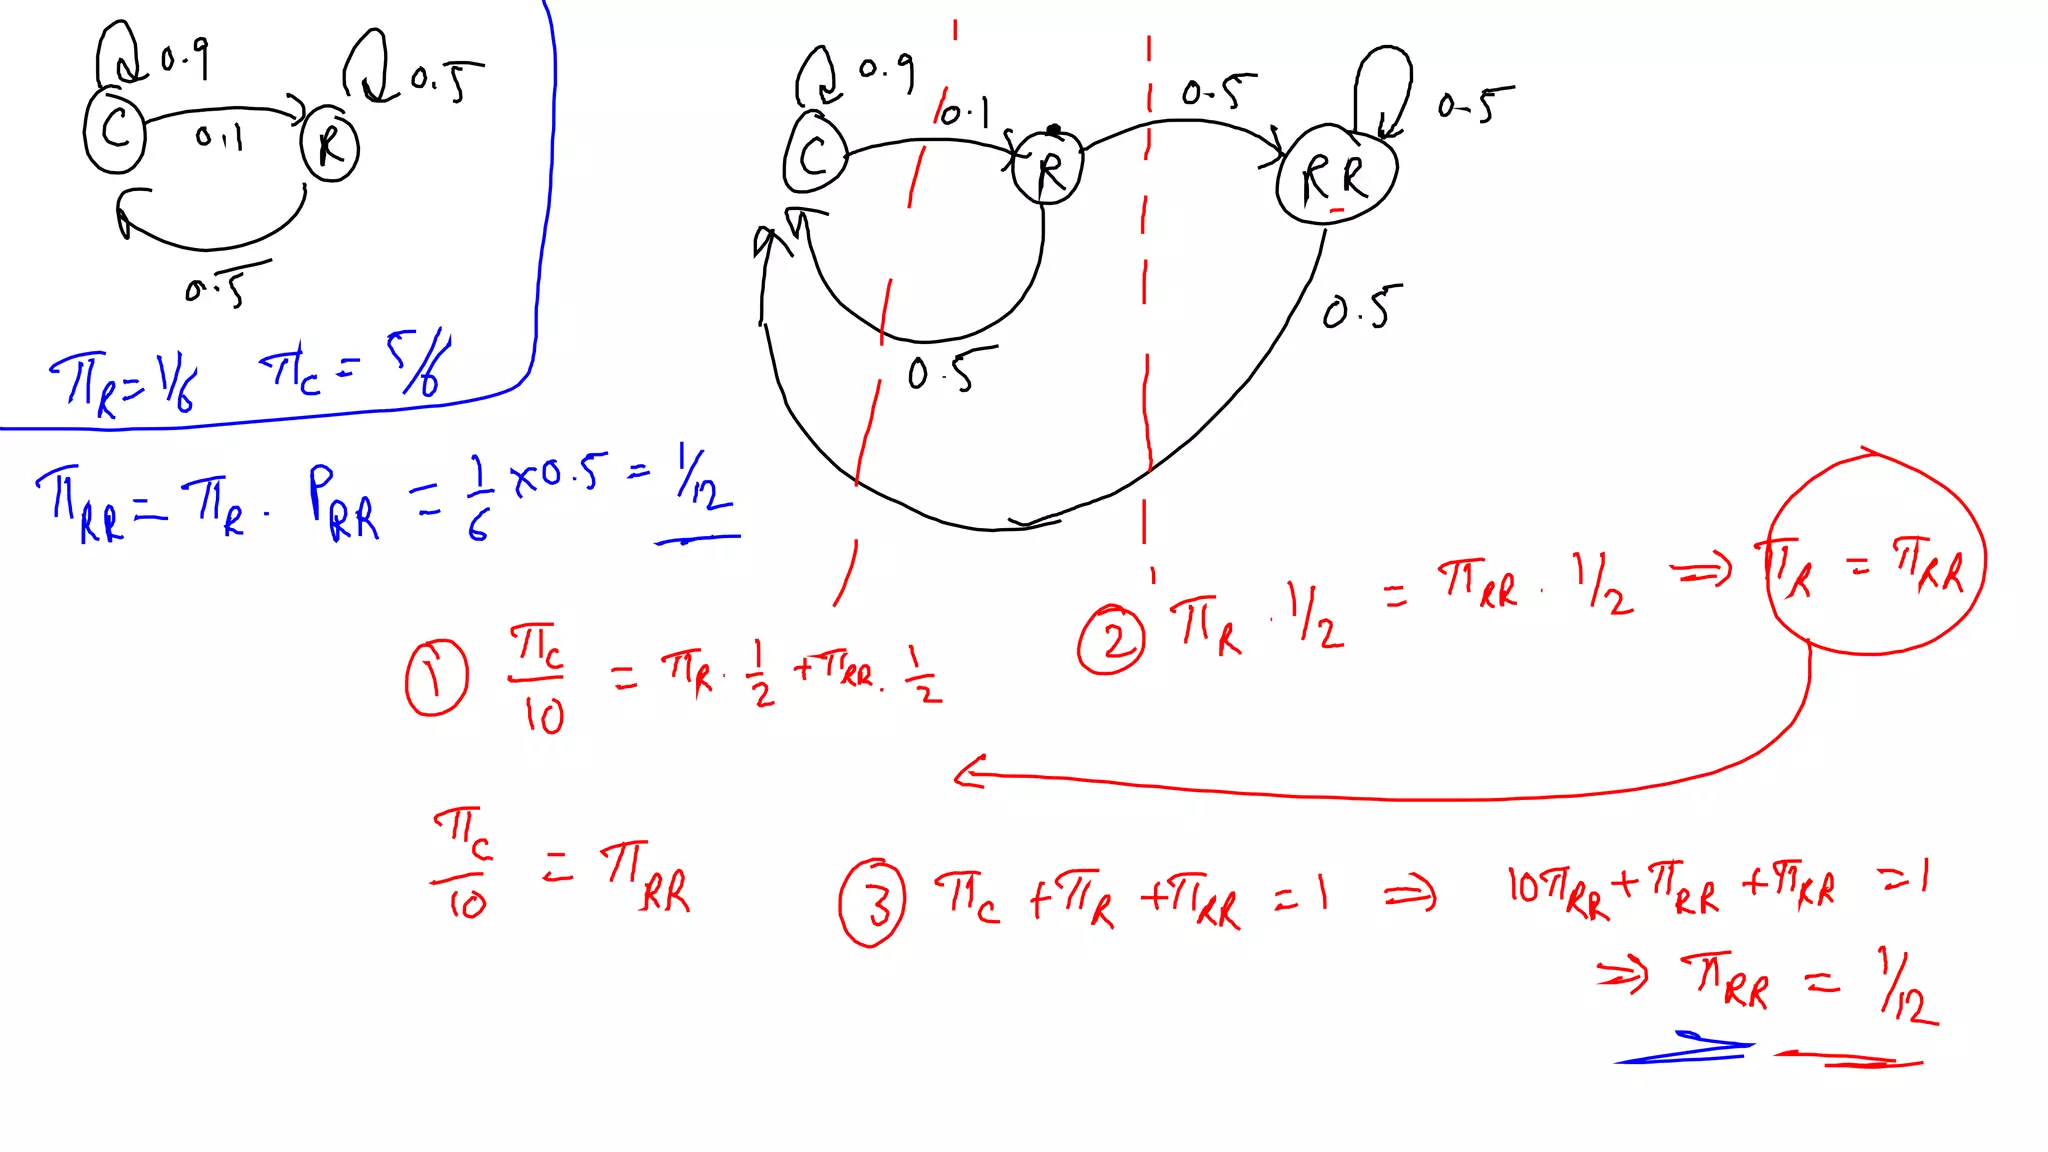 0.9
0.5
C
0.1
R
0.5
π_R = 1/6 π_C = 5/6
π_RR = π_R · P_RR = 1/6 × 0.5 = 1/12
0.9
0.1
0.5
0.5
C
R
RR
0.5
0.5
① π_C/10 = π_R · 1/2 + π_RR · 1/2
② π_R · 1/2 = π_RR · 1/2 ⇒ π_R = π_RR
π_C/10 = π_RR
③ π_C + π_R + π_RR = 1 ⇒ 10π_RR + π_RR + π_RR = 1
⇒ π_RR = 1/12